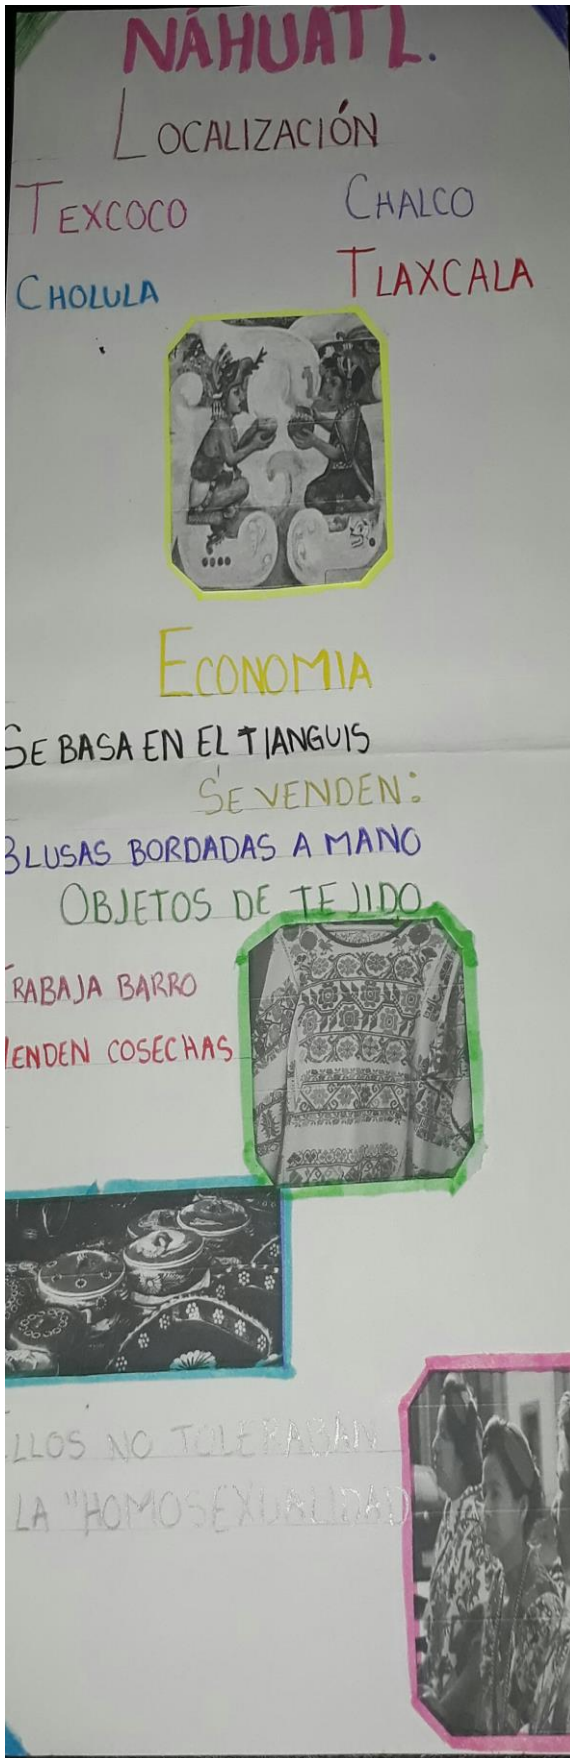 NÁHUATL.
LOCALIZACIÓN
TEXCOCO CHALCO
CHOLULA TLAXCALA
ECONOMIA
SE BASA EN EL TIANGUIS
SE VENDEN:
BLUSAS BORDADAS A MANO
OBJETOS DE TEJIDO
TRABAJA BARRO
VENDEN COSECHAS
ELLOS NO TOLERABAN
LA "HOMOSEXUALIDAD